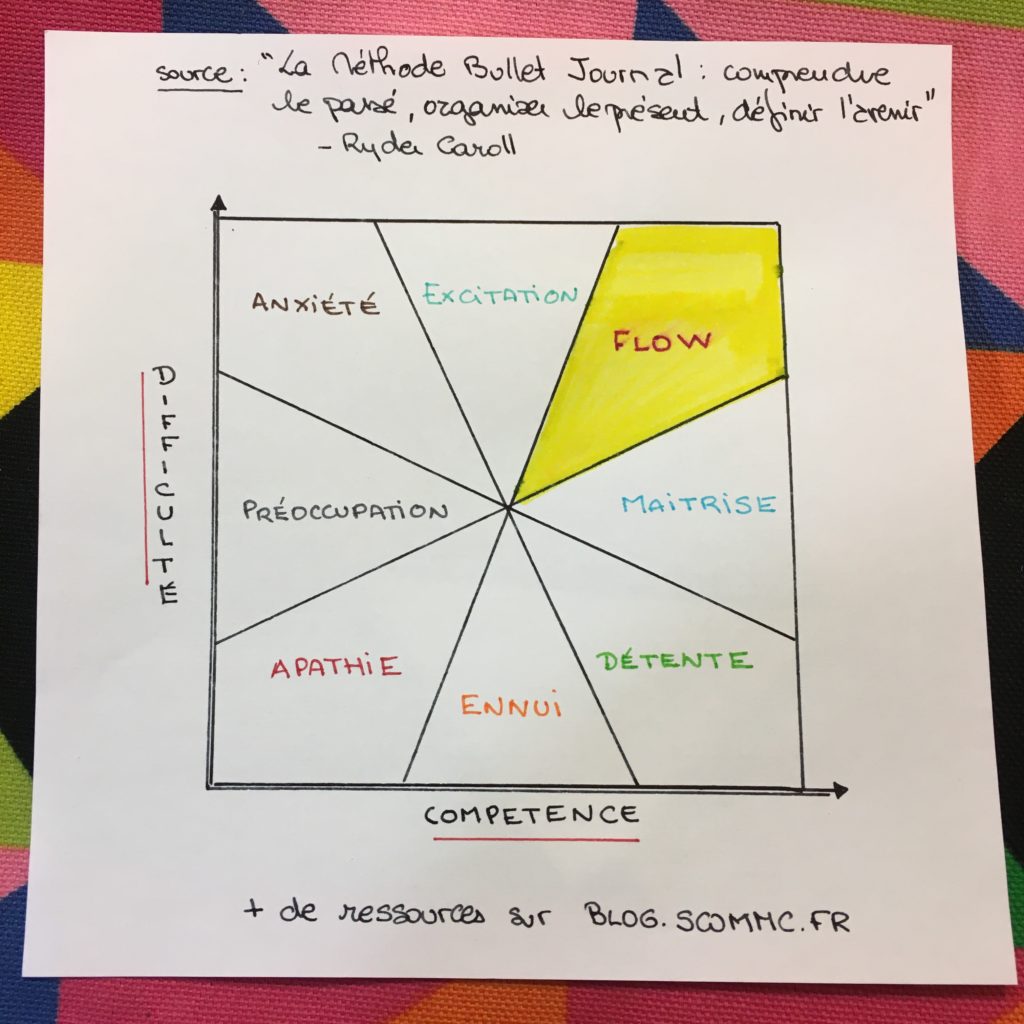 source : "La Méthode Bullet Journal : comprendre
le passé, organiser le présent, définir l'avenir"
- Ryder Caroll
ANXIÉTÉ
EXCITATION
FLOW
DIFFICULTÉ
PRÉOCCUPATION
MAITRISE
APATHIE
ENNUI
DÉTENTE
COMPETENCE
+ de ressources sur BLOG.SCOMMC.FR